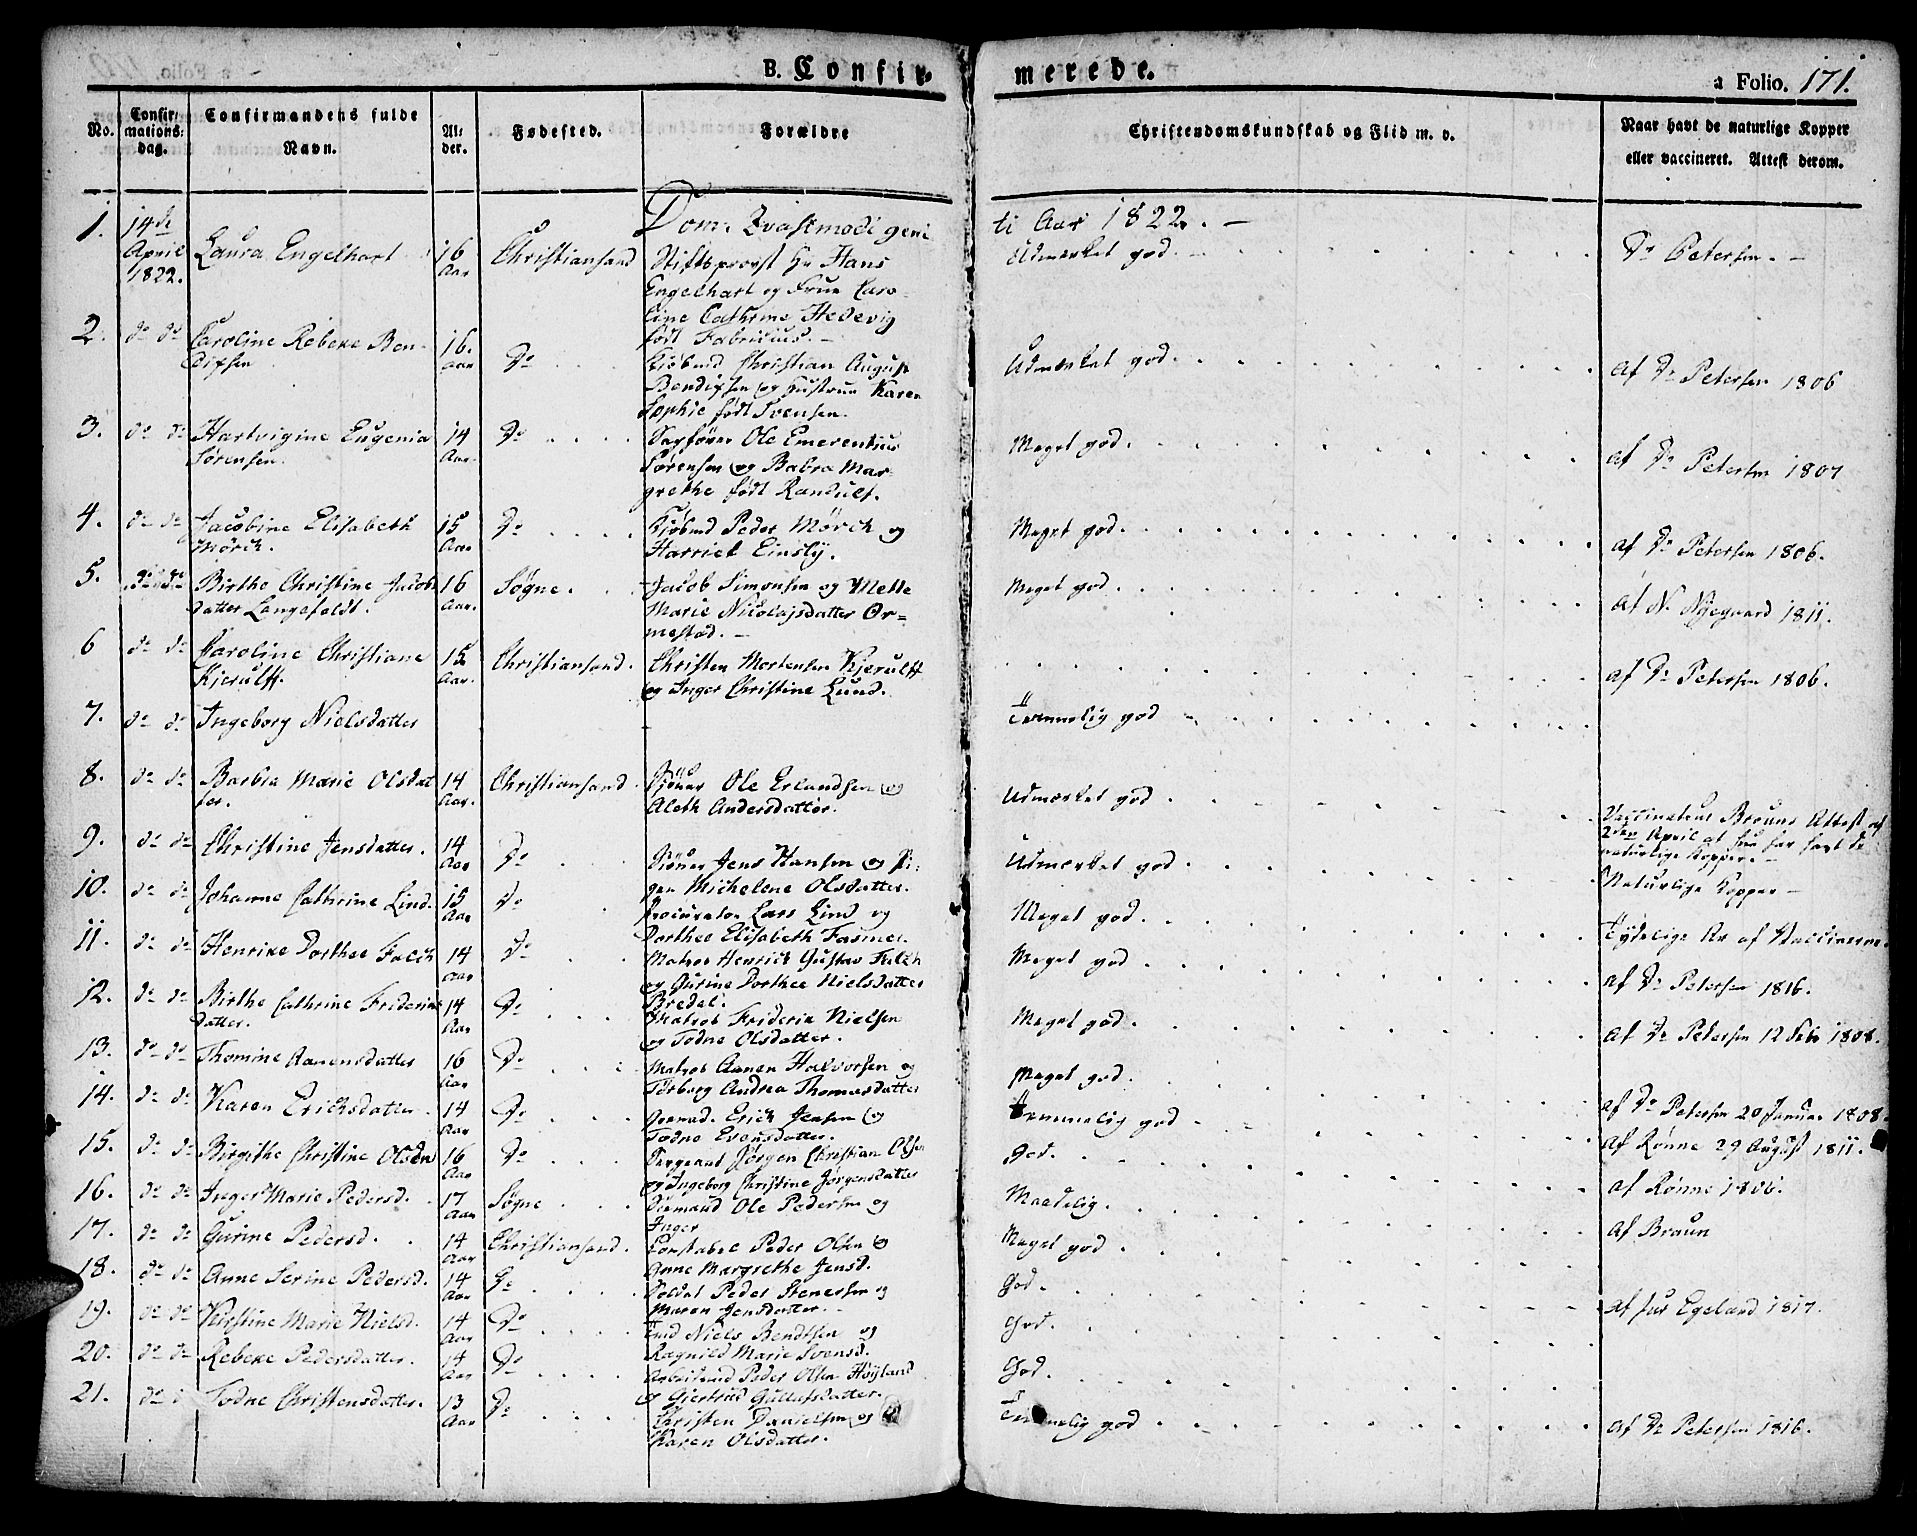 B. Confir-
merede.
a Folio. 171.
No.
Confir-
mations-
dag.
Confirmandens fulde
Navn.
Al-
der.
Fødested.
Forældre
Christendomskundskab og Flid m. v.
Naar havt de naturlige Kopper
eller vaccineret. Attest derom.
Dom: Qvasimodigeni
ti Aar 1822. -
1. 14de April 1822. Laura Engelhart 16 Aar Christiansand
Stiftsprovst Hr Hans
Engelhart og Frue Caro-
line Cathrine Hedevig
født Fabricius. -
Udmærket god. Dr Petersen. -
2. do do Caroline Rebeke Ben-
dixsen 16. Aar Do
Kiøbmd Christian August
Bendixsen og Hustrue Karen
Sophie født Svensen.
Udmærket god. af Dr Petersen 1806
3. do do Hartvigine Eugenia
Sørensen. 14 Aar. Do
Sagfører Ole Emerentius
Sørensen og Babra Mar-
grethe født Randulf.
Meget god. af Dr Petersen 1807
4. do do Jacobine Elisabeth
Mörch. 15 Aar. Do
Kjøbmd Peder Mörch og
Harriet Einsly.
Meget god. af Dr Petersen 1806.
5. do do Birthe Christine Jacobs
datter Langefeldt. 16 Aar. Søgne.
Jacob Simonsen og Mette
Marie Nicolajsdatter Or=
mestad. -
Meget god. af N. Nyegaard 1811.
6 do do Caroline Christiane
Kjerulff. 15 Aar. Christiansand.
Christen Mortensen Kjerulff
og Inger Christine Lund.
af Dr Petersen 1806.
7. do do Ingeborg Nielsdatter
Temmelig god
8. do do Barbra Marie Olsdat
ter. 14 Aar. Christiansand.
Ole Erlandsen og
Aleth Andersdatter.
Udmærket god
9. do do Christine Jensdatter. 14 Aar Do
Jens Hansen og Pi-
gen Michelene Olsdatter.
Udmærket god
Vaccinateur Brauns Attest af
2den April at hun har havt de
naturlige Kopper. -
10. do do Johanne Cathrine Lind. 15 Aar Do
Procurator Lars Lind og
Dorthee Elisabeth Fasmer.
Meget god. Naturlige Kopper -
11. do do Henrike Dorthee Falch 14 Aar Do
Matros Henrich Gustav Falch
og Gurine Dorthee Nielsdatter
Bredal.
Meget god Tydelige Ar af Vaccinerne.
12. do do Birthe Cathrine Friderichs
datter. 14 Aar Do
Matros Friderik Nielsen
og Todne Olsdatter.
Meget god. af Dr Petersen 1816.
13. do do Thomine Aanensdatter 16 Aar Do
Matros Aanen Halvorsen og
Torborg Andrea Thomasdatter
Meget god. af Dr Petersen 12 Feb 1808.
14. do do Karen Erichsdatter. 14 Aar Do
Erich Jensen og
Todne Evensdatter.
Temmelig god af Dr Petersen 20 Januar 1808.
15. do do Birgithe Christine Olsdr 16 Aar Do
Sergeant Jörgen Christian Olsen
og Ingeborg Christine Jørgensdatter
God. af Rönne 29 August 1811.
16. do do Inger Marie Pedersd. 17 Aar Søgne
Ole Pedersen og
Inger
Maadelig. af Rönne 1806.
17. do do Gurine Pedersd. 14 Aar Christiansand.
Constabel Peder Olsen og
Anne Margrethe Jensd.
Meget god af Braun
18. do do Anne Serine Pedersd. 14 Aar Do
Soldat Peder Stenersen og
Maren Jensdatter.
God.
19. do do Kirstine Marie Nielsd. 14 Aar Do
Niels Bendtsen og
Ragnild Marie Svensd.
God. af Lux Egeland 1817.
20. do do Rebeke Pedersdatter. 14 Aar Do
Arbeidsmd Peder Olsen Høyland
og Giertrud Gullefsdatter.
God
21. do d Todne Christensdatter. 13 Aar Do
Christen Danielsen og
Karen Olsdatter.
Temmelig god af Dr Petersen 1816.